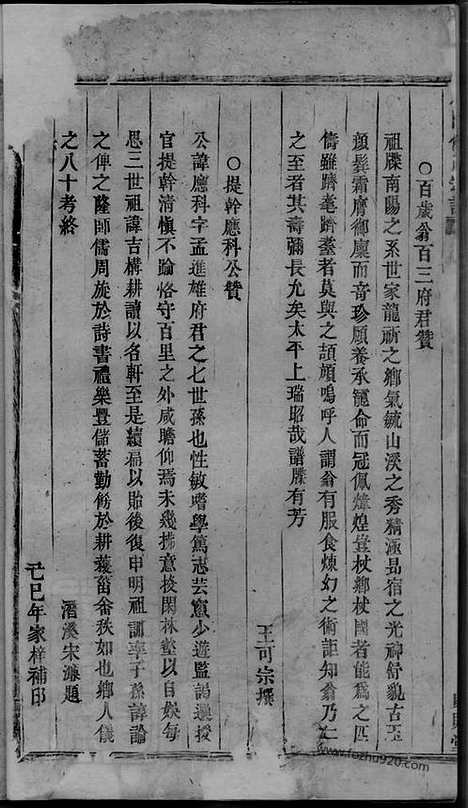 ○百歲翁百三府君贊
祖牒南陽之系世家龍祈之鄉氣毓山溪之秀精涵昴宿之光神舒貌古玉
顏鬂霜膺御廩而奇珍頤養承寵命而冠佩煒煌豈杖鄉杖國者能爲之匹
儔雖躋耄躋耋者莫與之頡頏嗚呼人謂翁有服食煉幻之術詎知翁乃仁
之至者其壽彌長允矣太平上瑞昭哉譜牒有芳
王可宗撰
○提幹應科公贊
公諱應科字孟進雄府君之七世孫也性敏嗜學篤志芸窻少遊監謁選授
官提幹清愼不踰恪守百里之外咸瞻仰焉未幾拂意投閑林壑以自娛每
思三世祖諱吉構耕讀以名軒至是續扁以貽後復申明祖訓率子孫諄諭
之俾之隆師儒周旋於詩書禮樂豐儲蓄勤飭於耕菑畬秩如也鄉人儀
之八十考終
潛溪宋濂題
己巳年家梓補印
www.fozhu920.com